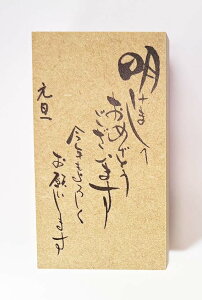 明けまして
おめでとう
ございます
今年もよろしく
お願いします
元旦